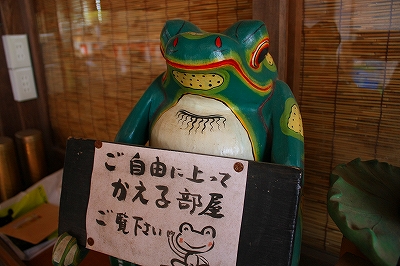 ご自由に上って
かえる部屋
ご覧下さい